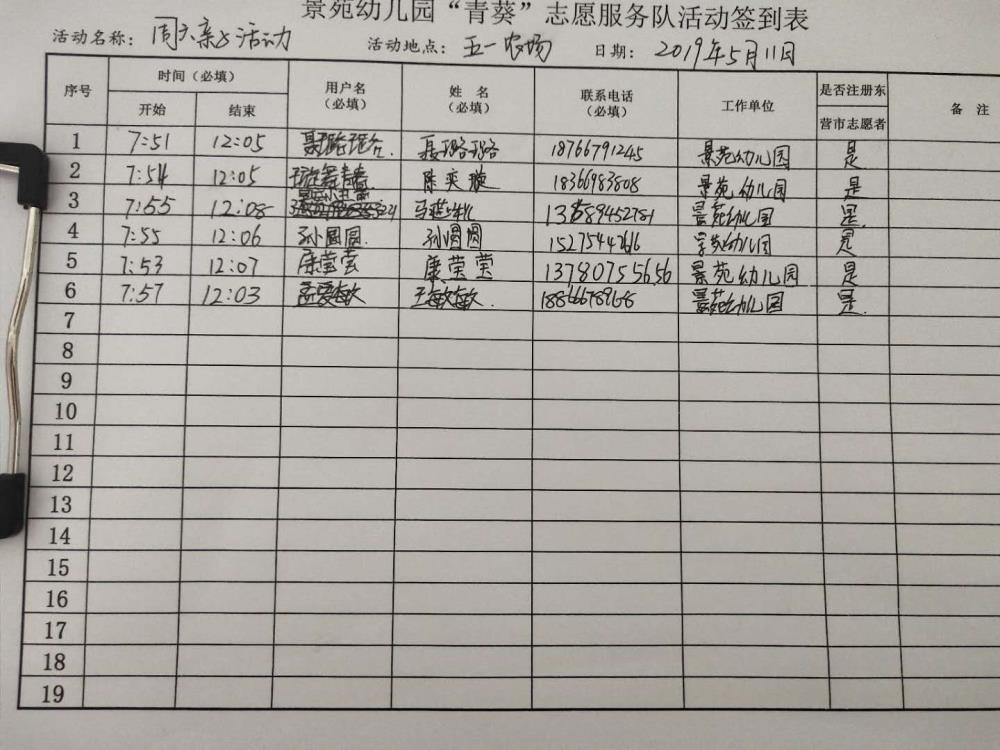 景苑幼儿园“青葵”志愿服务队活动签到表
活动名称： 周六亲子活动 活动地点： 五一农场 日期： 2019年5月11日
序号 时间（必填） 用户名（必填） 姓 名（必填） 联系电话（必填） 工作单位 是否注册东营市志愿者 备 注
开始 结束
1 7:51 12:05 聂珞珞 18766791245 景苑幼儿园 是
2 7:54 12:05 陈奕璇 18366983808 景苑幼儿园 是
3 7:55 12:08 景苑幼儿园 是
4 7:55 12:06 孙圆圆 孙圆圆 景苑幼儿园 是
5 7:53 12:07 康莹莹 康莹莹 13780755656 景苑幼儿园 是
6 7:57 12:03 王敏敏 景苑幼儿园 是
7
8
9
10
11
12
13
14
15
16
17
18
19